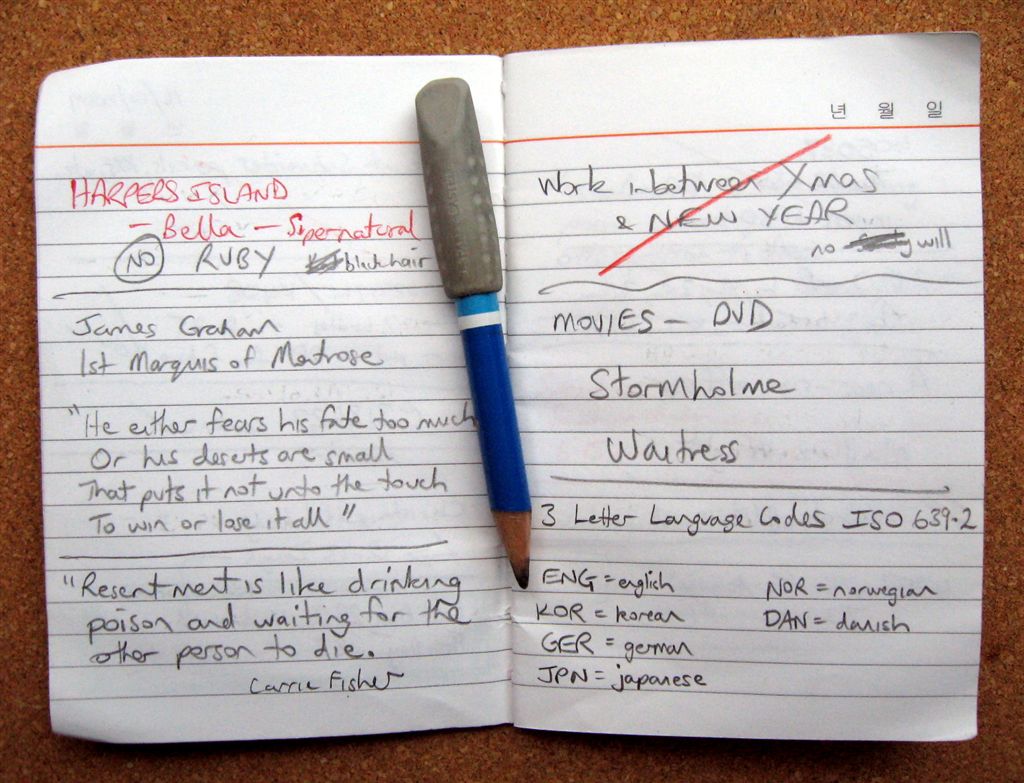 HARPERS ISLAND
- Bella - Supernatural
NO RUBY black hair
James Graham
1st Marquis of Montrose
"He either fears his fate too much
Or his deserts are small
That puts it not unto the touch
To win or lose it all"
"Resentment is like drinking
poison and waiting for the
other person to die.
Carrie Fisher
년 월 일
Work inbetween Xmas
& NEW YEAR
no will
MOVIES - DVD
Stormholme
Waitress
3 Letter Language Codes ISO 639-2
ENG = english NOR = norwegian
KOR = korean DAN = danish
GER = german
JPN = japanese